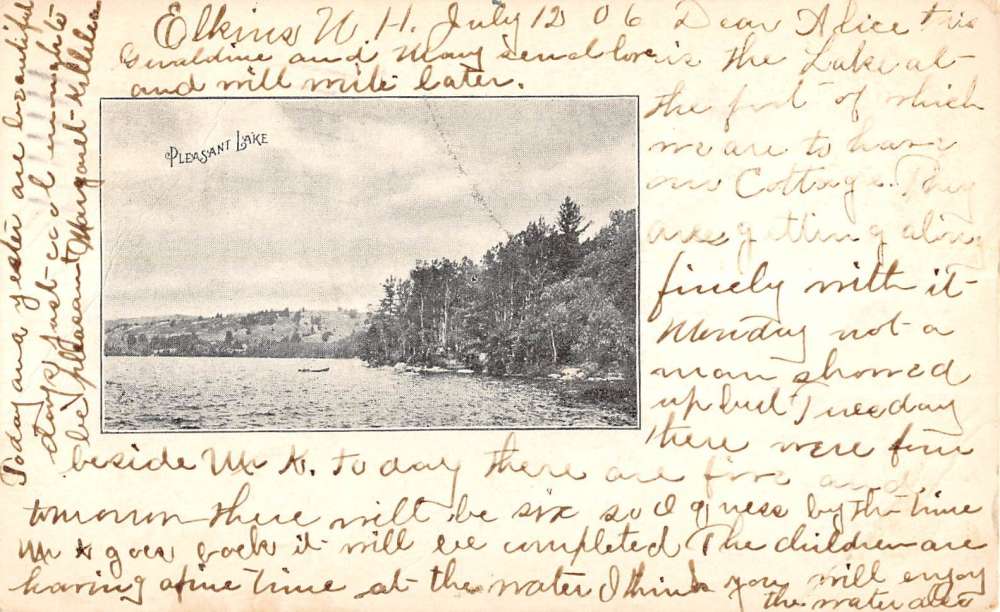 Elkins N. H. July 12 06 Dear Alice this
is the Lake at
the foot of which
we are to have
our Cottage. They
are getting along
finely with it
Monday not a
man showed
up but Tuesday
there were five
beside Mr K. To day there are five and
tomorrow there will be six so I guess by the time
Mr K goes back it will be completed The children are
having a fine time at the water I think you will enjoy
the water also
Today and yester are beautiful
days just cool enough to
be pleasant Margaret Kellelea
Geraldine and Mary send love
and will write later.
PLEASANT LAKE